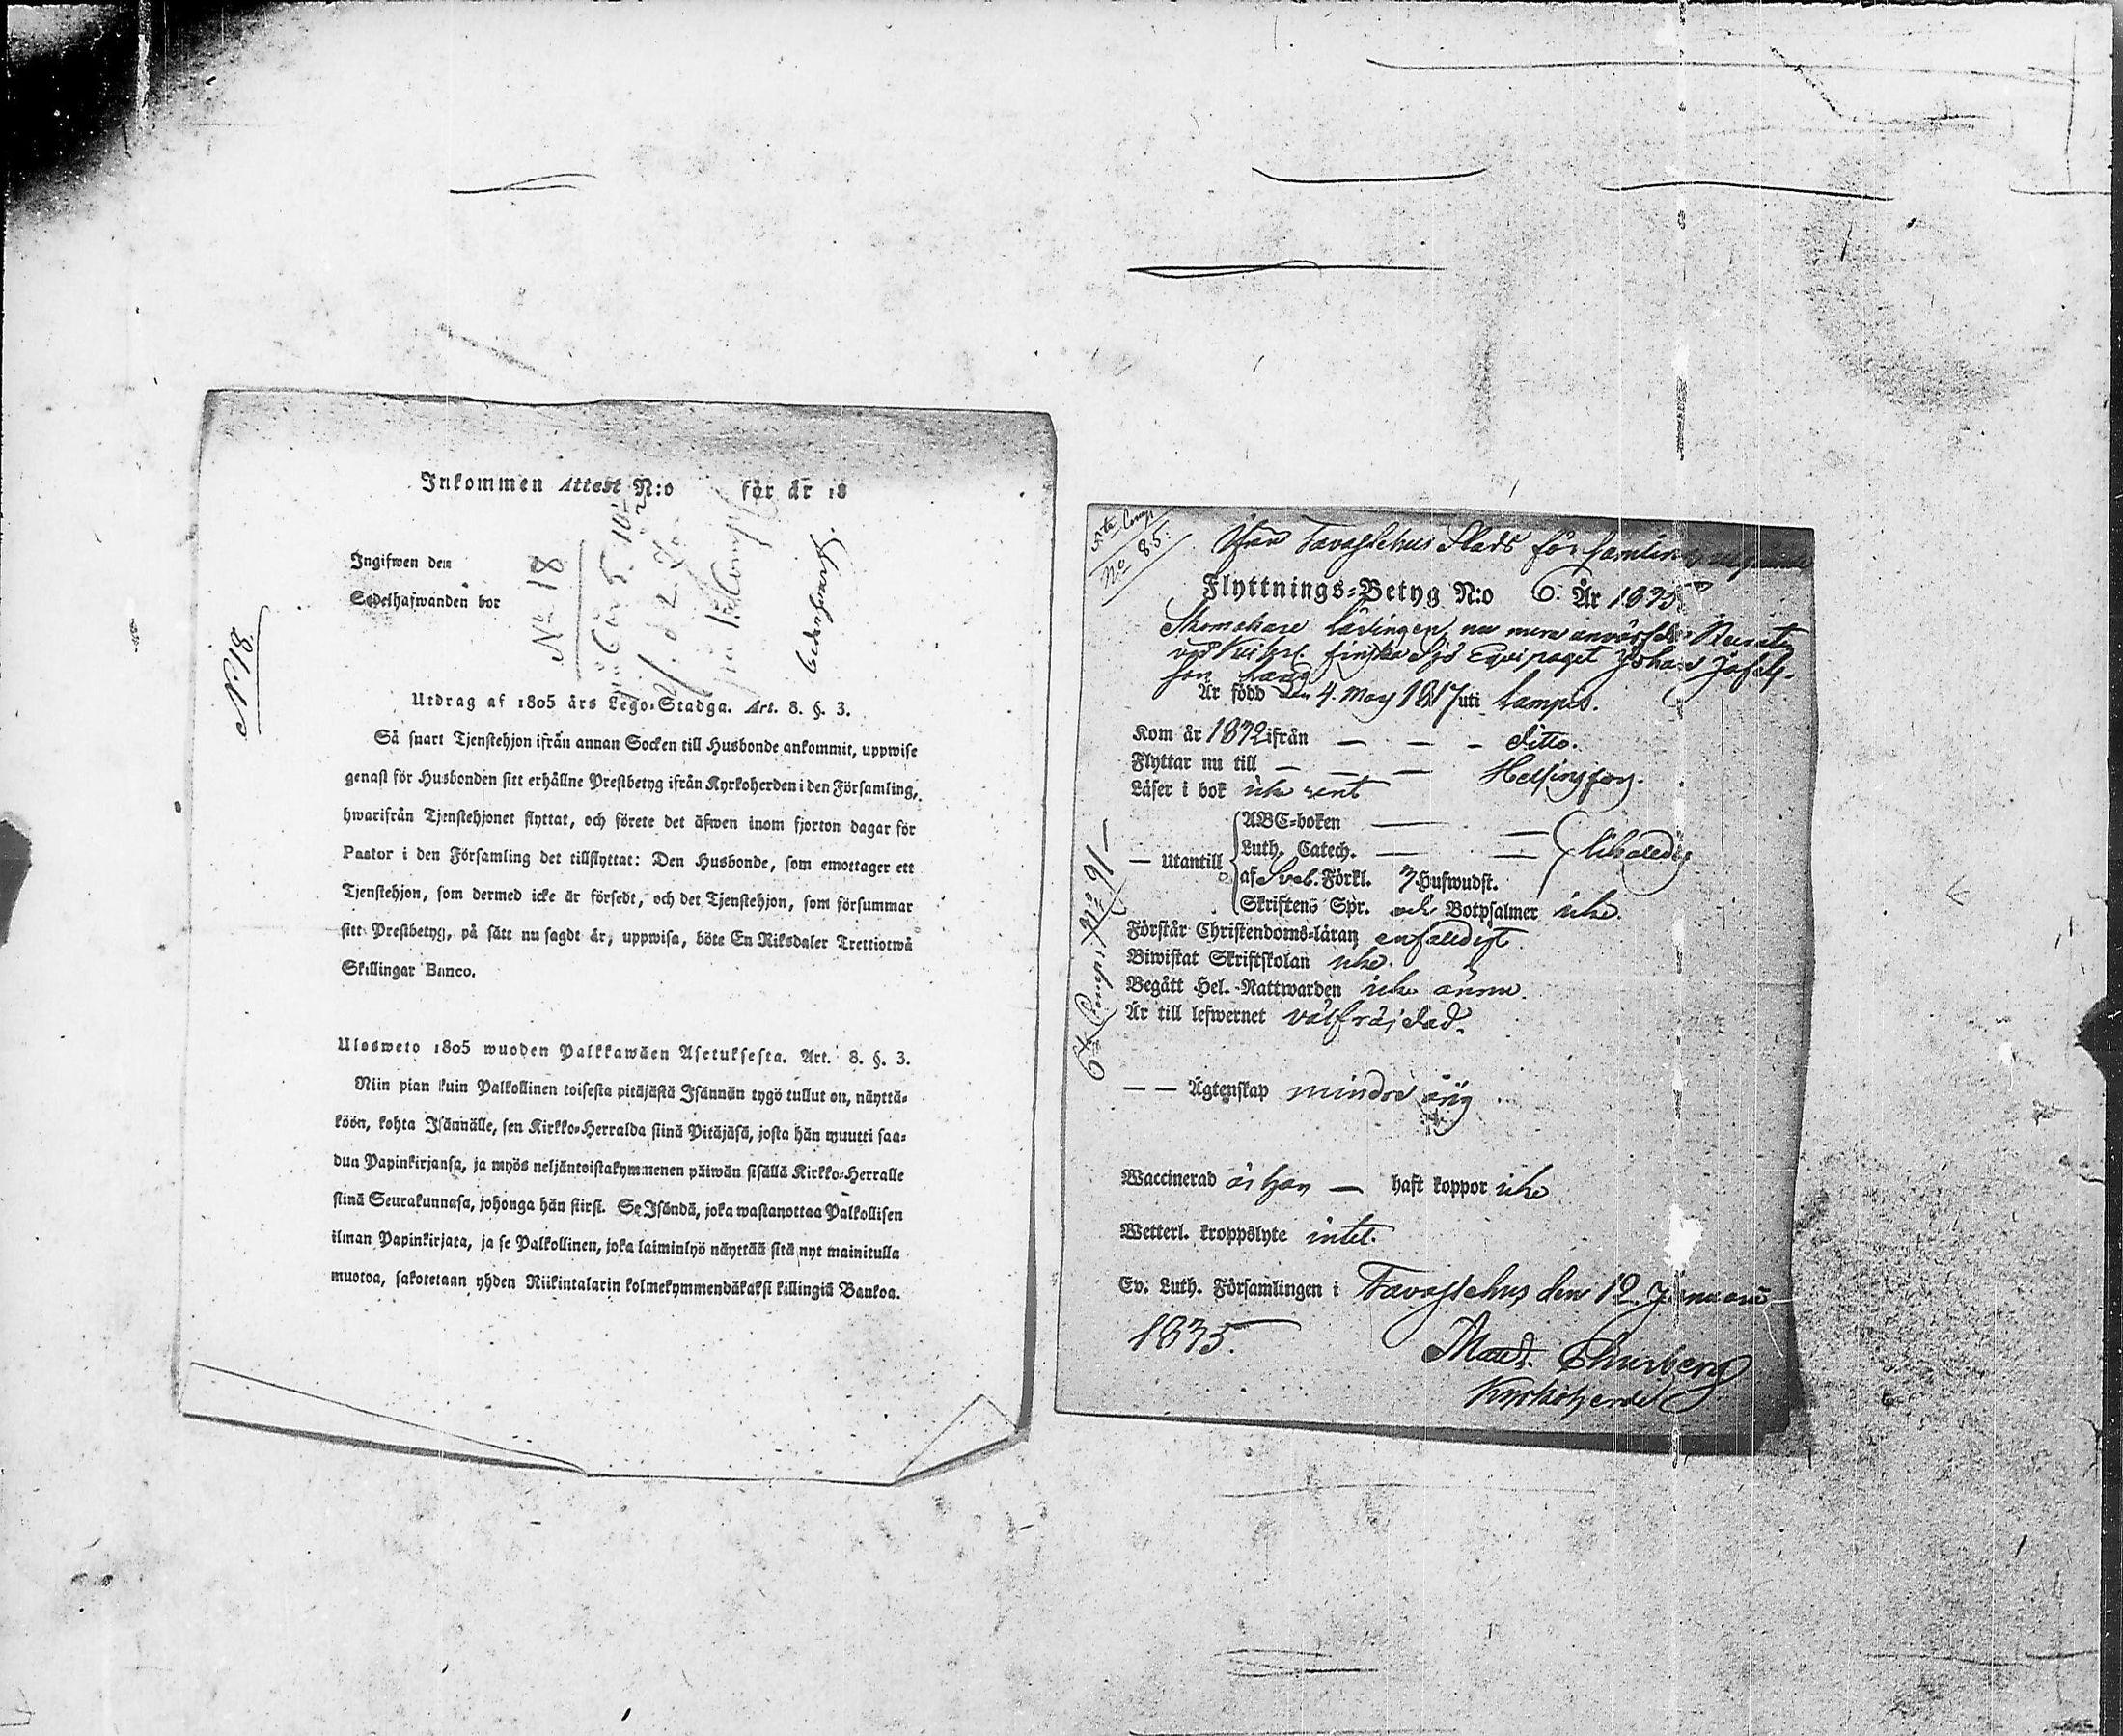 Inkommen Attest N:o för år 18
Ingifwen den
Sedelhafwanden bor
No 18
N. 18
Utdrag af 1805 års Lego-Stadga. Art. 8. §. 3.
Så snart Tjenstehjon ifrån annan Socken till Husbonde ankommit, uppwise
genast för Husbonden sitt erhållne Prestbetyg ifrån Kyrkoherden i den Församling,
hwarifrån Tjenstehjonet flyttat, och förete det äfwen inom fjorton dagar för
Pastor i den Församling det tillflyttat: Den Husbonde, som emottager ett
Tjenstehjon, som dermed icke är försedt, och det Tjenstehjon, som försummar
sitt Prestbetyg, på sätt nu sagdt är, uppwisa, böte En Riksdaler Trettiotwå
Skillingar Banco.
Ulosweto 1805 wuoden Palkkawäen Asetuksesta. Art. 8. §. 3.
Niin pian kuin Palkollinen toisesta pitäjästä Isännän tygö tullut on, näyttä-
köön, kohta Isännälle, sen Kirkko-Herralda siinä Pitäjäsä, josta hän muutti saa-
dun Papinkirjansa, ja myös neljäntoistakymmenen päiwän sisällä Kirkko-Herralle
siinä Seurakunnasa, johonga hän siirsi. Se Isändä, joka wastanottaa Palkollisen
ilman Papinkirjata, ja se Palkollinen, joka laiminlyö näyttää sitä nyt mainitulla
muotoa, sakotetaan yhden Riikintalarin kolmekymmendäkaksi killingiä Bankoa.
No 85.
Ifrån Tavastehus Stads församling
Flyttnings-Betyg N:o 6. År 1835
Skomakare lärlingen, nu mera
vid finska Sjö Equipaget Johan Josefs-
son
Är född den 4. May 1817 uti Lampis.
Kom år 1832 ifrån — — – ditto.
Flyttar nu till – — — Helsingfors.
Läser i bok icke rent
— Utantill
ABC-boken — —
Luth. Catech. — —
af Sveb. Förkl. 3 Hufwudst.
Skriftens Spr. och Botpsalmer icke.
Förstår Christendoms-läran enfaldigt.
Biwistat Skriftskolan icke.
Begått Hel. Nattwarden icke ännu.
Är till lefwernet välfräjdad.
— — Ägtenskap minderårig
Waccinerad är han — haft koppor icke
Wetterl. kroppslyte intet.
Ev. Luth. Församlingen i Tavastehus den 12. Januari
1835.
Thurberg
Kyrkoherde
6te Comp: No 91